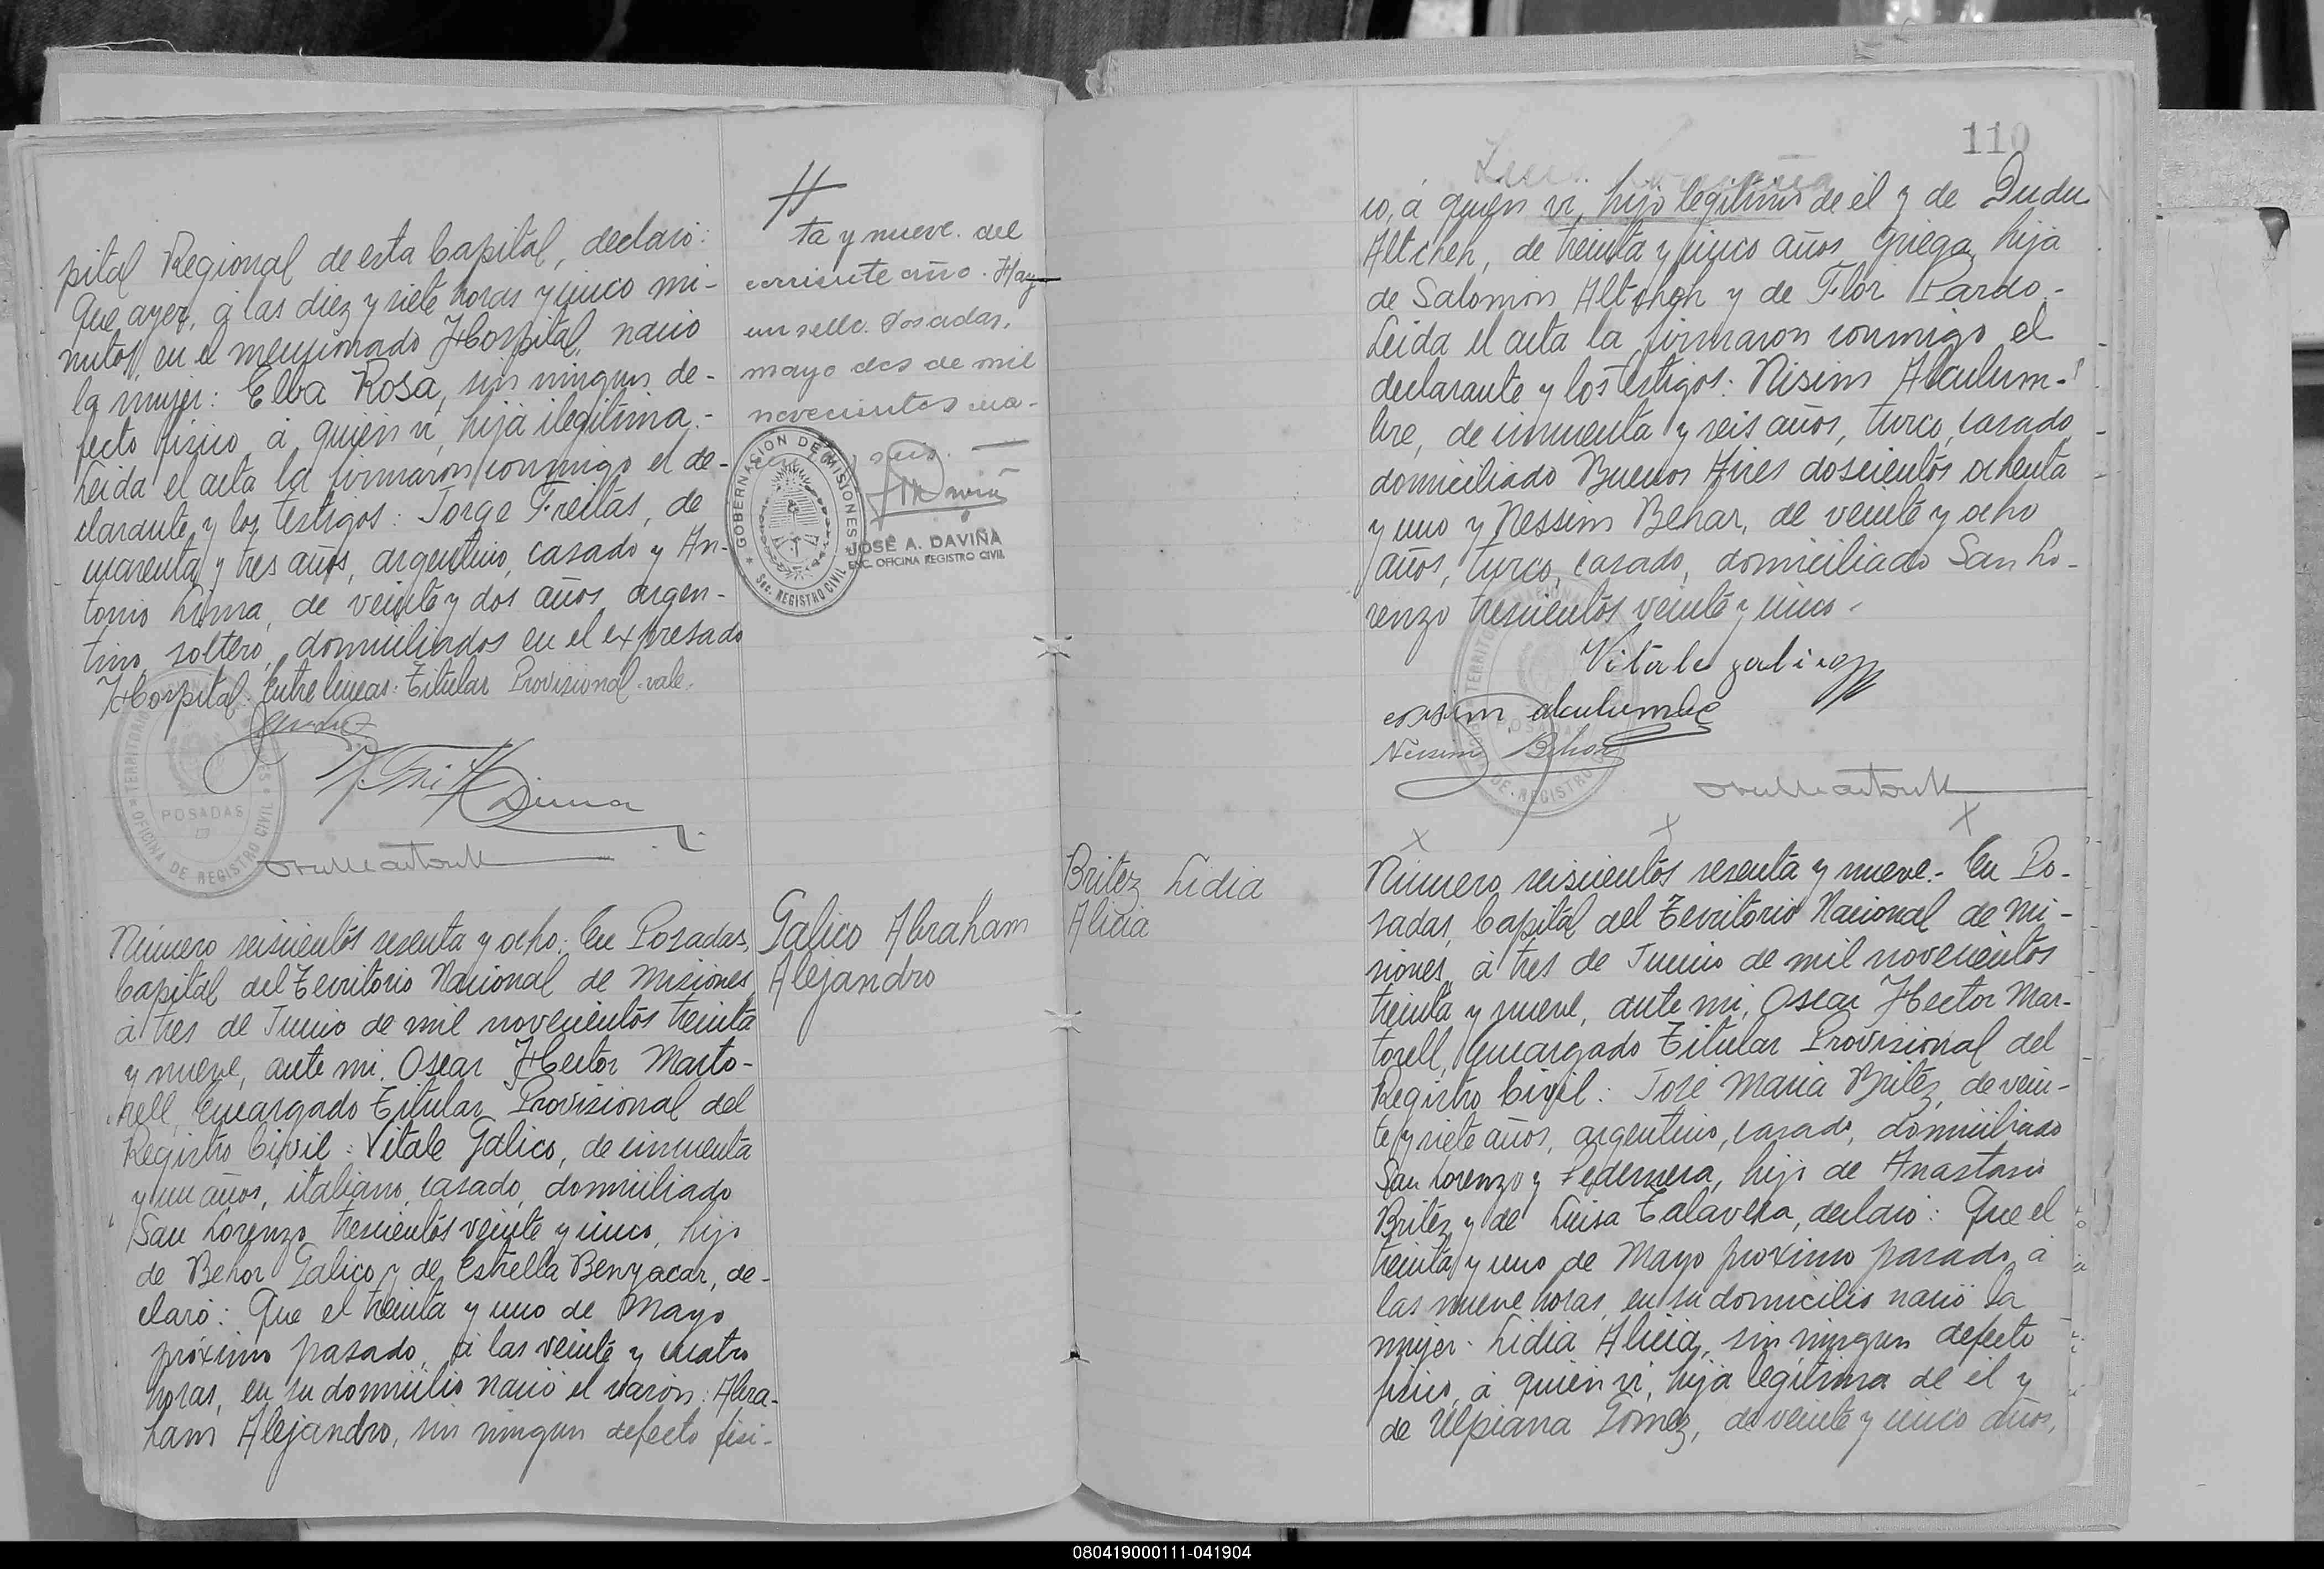 pital Regional de esta Capital, declaró:
Que ayer, á las diez y siete horas y cinco mi-
nutos, en el mencionado Hospital, nació
la mujer: Elba Rosa, sin ningun de-
fecto físico, á quién ví, hija ilegítima.-
Leida el acta la firmaron conmigo el de-
clarante y los testigos: Jorge Freitas, de
cuarenta y tres años, argentino, casado y An-
tonio Lima, de veinte y dos años, argen-
tino, soltero, domiciliados en el expresado
Hospital. Entre lineas: Titular Provisional-vale.
TERRITORIO
POSADAS
OFICINA DE REGISTRO CIVIL
Número seiscientos sesenta y ocho: En Posadas,
Capital del Territorio Nacional de Misiones,
á tres de Junio de mil novecientos treinta
y nueve, ante mi, Oscar Hector Marto-
rell, Encargado Titular Provisional del
Registro Civil: Vitale Galico, de cincuenta
y un años, italiano, casado, domiciliado
San Lorenzo trescientos veinte y cinco, hijo
de Behor Galico y de Estrella Benyacar, de-
claró: Que el treinta y uno de Mayo
próximo pasado, á las veinte y cuatro
horas, en su domicilio nació el varón: Abra-
ham Alejandro, sin ningun defecto físi-
ta y nueve. del
corriente año. Hay
un sello. Posadas,
mayo dos de mil
novecientos cua-
seis.
GOBERNACION DE MISIONES
Sec. REGISTRO CIVIL
JOSÉ A. DAVIÑA
ENC. OFICINA REGISTRO CIVIL
Galico Abraham
Alejandro
110
co, á quién ví, hijo legítimo de él y de Dudu
Altcheh, de treinta y cinco años, griega, hija
de Salomón Altcheh y de Flor Pardo.-
Leida el acta la firmaron conmigo el
declarante y los testigos: Nisim Alculum-
bre, de cincuenta y seis años, turco, casado,
domiciliado Buenos Aires doscientos ochenta
y uno y Nessim Behar, de veinte y ocho
años, turco, casado, domiciliado San Lo-
renzo trescientos veinte y cinco.
Vitale galico
nisim alculumbre
Nessim Behar
TERRITORIO NACIONAL
POSADAS
DE REGISTRO
Britez Lidia
Alicia
Número seiscientos sesenta y nueve.- En Po-
sadas, Capital del Territorio Nacional de Mi-
siones, á tres de Junio de mil novecientos
treinta y nueve, ante mi, Oscar Hector Mar-
torell, Encargado Titular Provisional del
Registro Civil: José Maria Britez, de vein-
te y siete años, argentino, casado, domiciliado
San Lorenzo y Pedernera, hijo de Anastasio
Britez y de Luisa Talavera, declaró: Que el
treinta y uno de Mayo próximo pasado, á
las nueve horas, en su domicilio nació la
mujer: Lidia Alicia, sin ningun defecto
físico, á quién ví, hija legítima de él y
de Ulpiana Gómez, de veinte y cinco años,
080419000111-041904